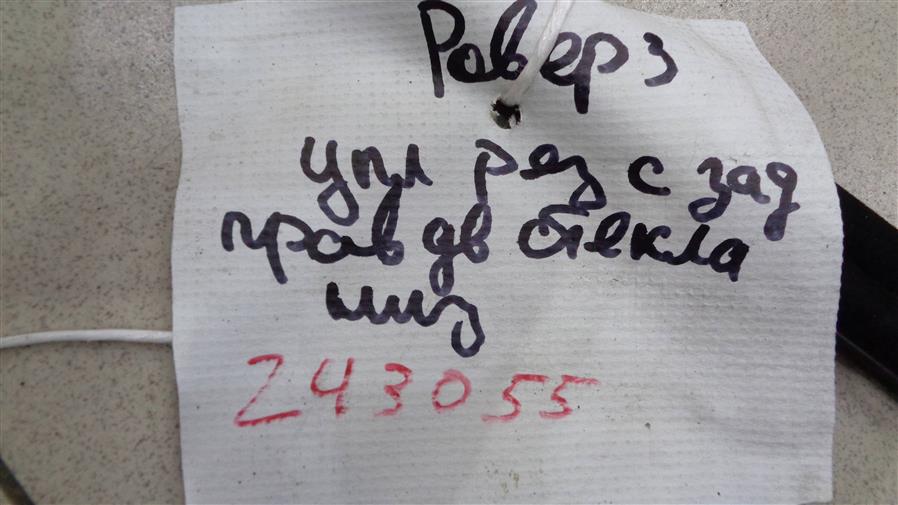 Ровер 3
упл рез с зад
прав дв стекла
низ
243055